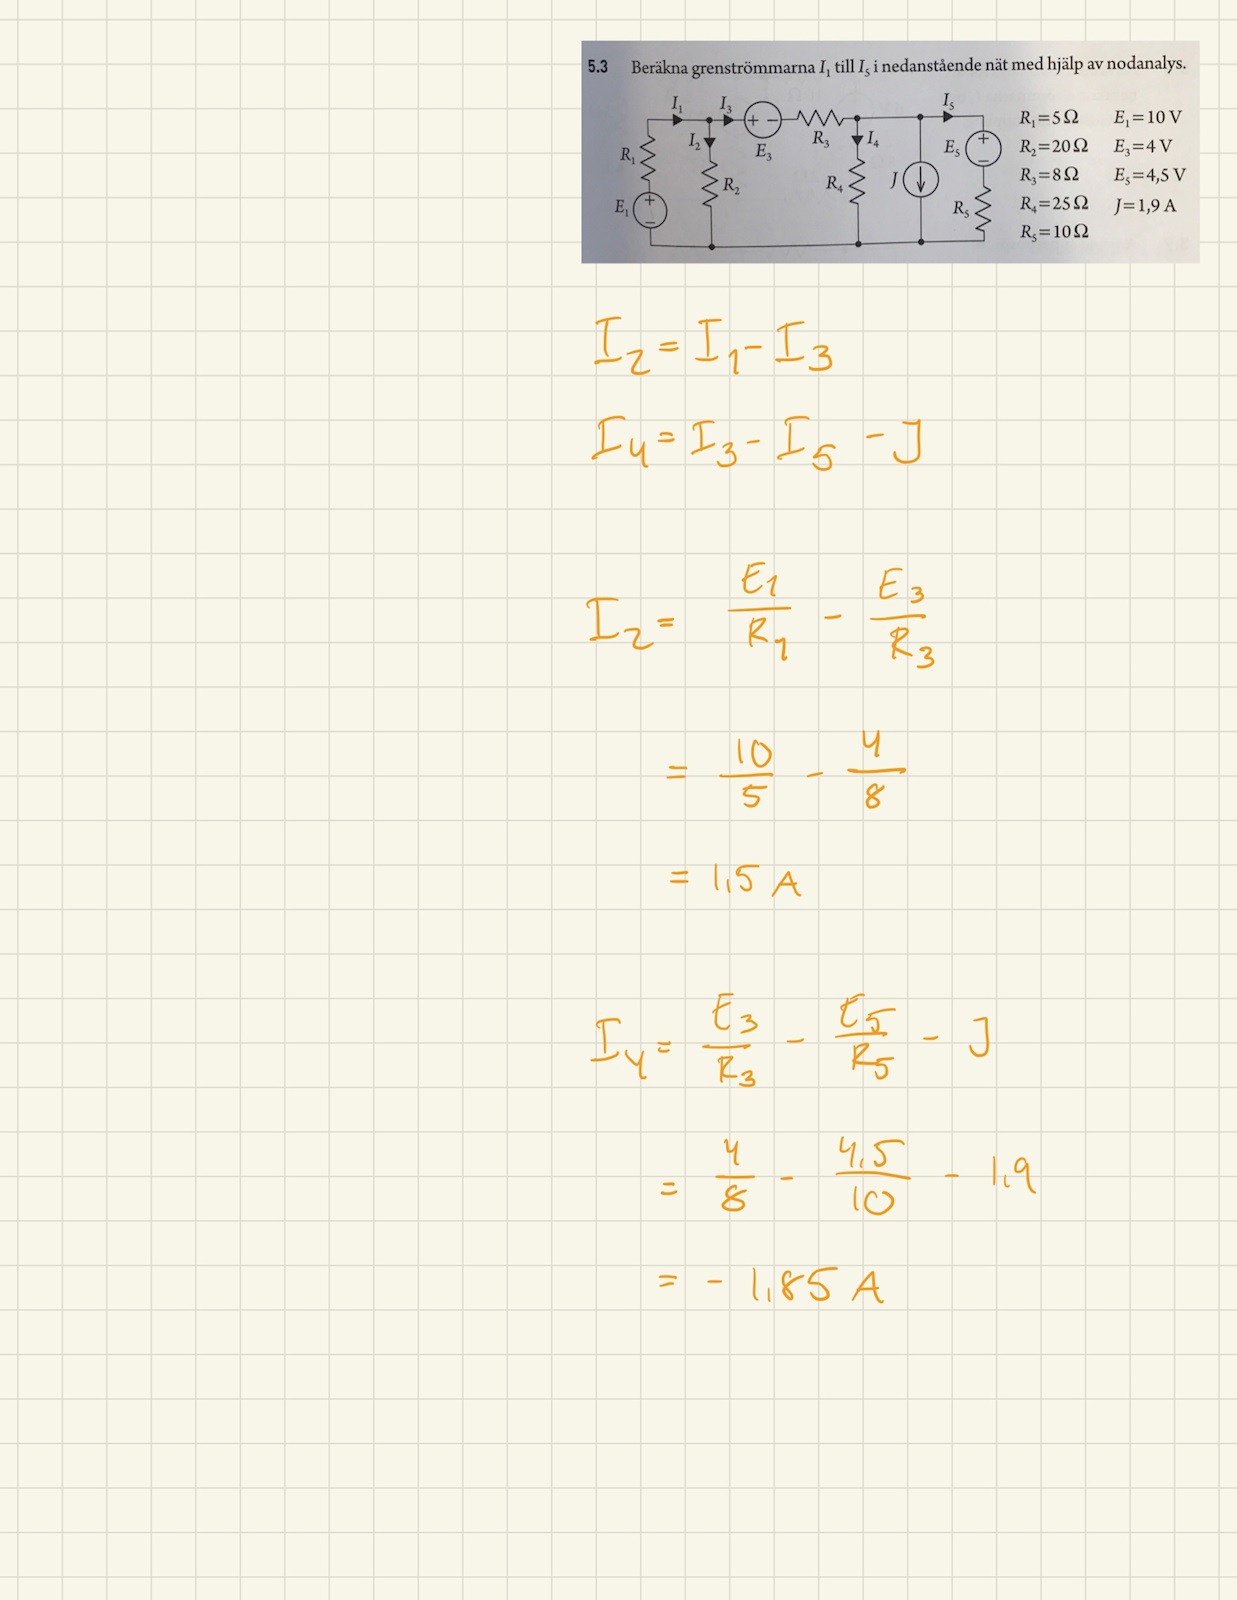 5.3 Beräkna grenströmmarna I₁ till I₅ i nedanstående nät med hjälp av nodanalys.
I₁ I₃ I₅
R₁=5Ω E₁=10 V
I₂ E₃ R₃ I₄ E₅
R₂=20Ω E₃=4 V
R₁ R₂ R₄ J
R₃=8Ω E₅=4,5 V
E₁ R₅
R₄=25Ω J=1,9 A
R₅=10Ω
I₂ = I₁ - I₃
I₄ = I₃ - I₅ - J
I₂ = E₁/R₁ - E₃/R₃
= 10/5 - 4/8
= 1,5 A
I₄ = E₃/R₃ - E₅/R₅ - J
= 4/8 - 4,5/10 - 1,9
= - 1,85 A